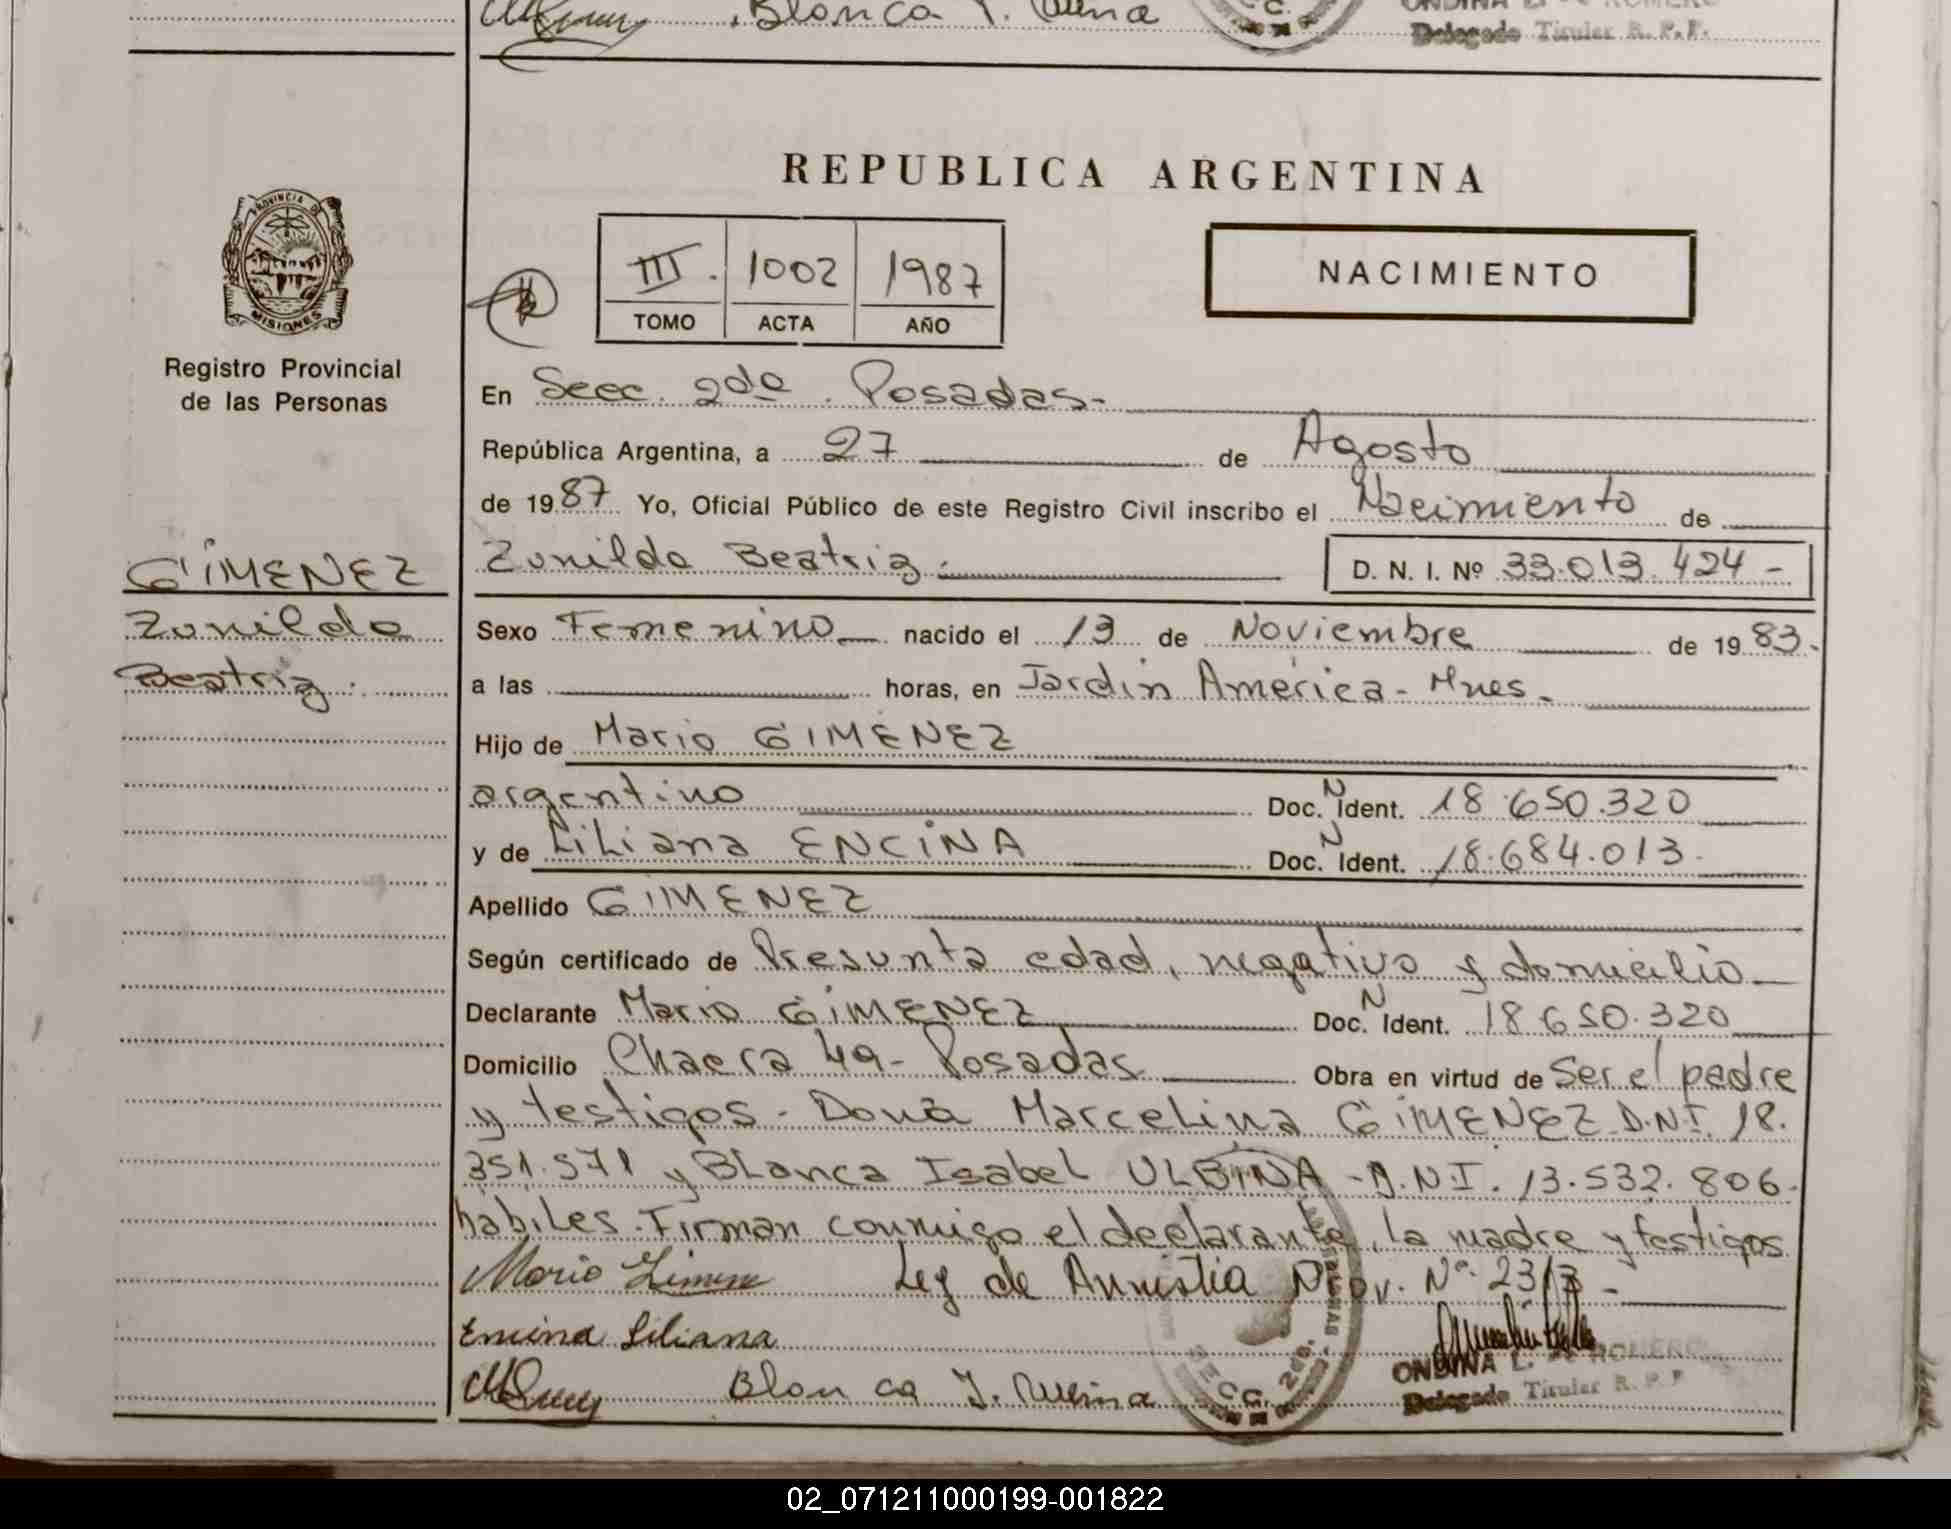 Blanca I.
Delegado Titular R. P. P.
REPUBLICA ARGENTINA
PROVINCIA DE
MISIONES
Registro Provincial
de las Personas
III. 1002 1987
TOMO ACTA AÑO
NACIMIENTO
En Secc. 2da. Posadas.-
República Argentina, a 27 de Agosto
de 1987 Yo, Oficial Público de este Registro Civil inscribo el Nacimiento de
Zunilda Beatriz.
D. N. I. Nº 33.013.424-
GIMENEZ
Zunilda
Beatriz.
Sexo Femenino nacido el 13 de Noviembre de 1983.
a las horas, en Jardín América - Mnes.
Hijo de Mario GIMENEZ
argentino Doc. N Ident. 18.650.320
y de Liliana ENCINA Doc. N Ident. 18.684.013.
Apellido GIMENEZ
Según certificado de Presunta edad, negativo y domicilio
Declarante Mario GIMENEZ Doc. N Ident. 18.650.320
Domicilio Chacra 49 - Posadas Obra en virtud de Ser el padre
y testigos - Doña Marcelina GIMENEZ D.N.I. 18.
351.571 y Blanca Isabel ULBINA - D.N.I. 13.532.806-
hábiles. Firman conmigo el declarante, la madre y testigos
Mario Ley de Amnistia Prov. Nº 2313 -
Encina Liliana
Blanca I.
SECC. 2da.
ONDINA L. DE ROMERO
Delegado Titular R. P. P
02_071211000199-001822